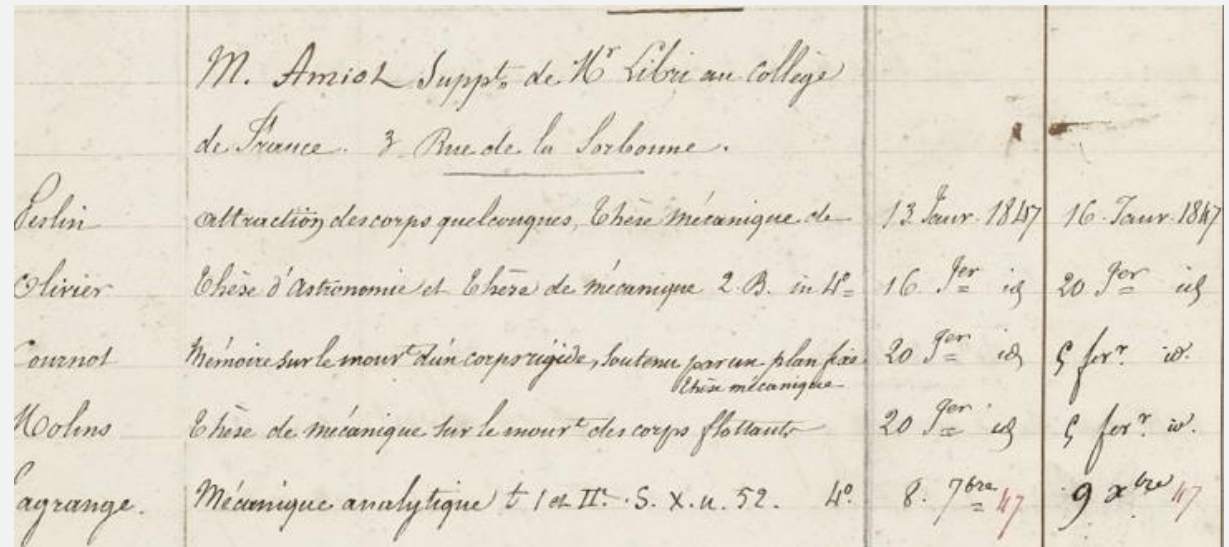 M. Amiot Suppt. de Mr Libri au collège
de France. 3 Rue de la Sorbonne.
Peslin attraction des corps quelconques, Thèse mécanique de 13. Janr. 1847 16. Janr. 1847
Olivier Thèse d'Astronomie et Thèse de mécanique 2. B. in 4º 16 Jer id 20 Jer id
Cournot Mémoire sur le mouvt. d'un corps rigide, soutenu par un plan fixe 20 Jer id 5 fevr. id.
Thèse mécanique
Molins Thèse de mécanique sur le mouvt des corps flottants 20 Jer id 5 fevr. id.
agrange. Mécanique analytique t 1 et IIe. S. X. u. 52. 4º 8. 7bre 47 9 xbre 47